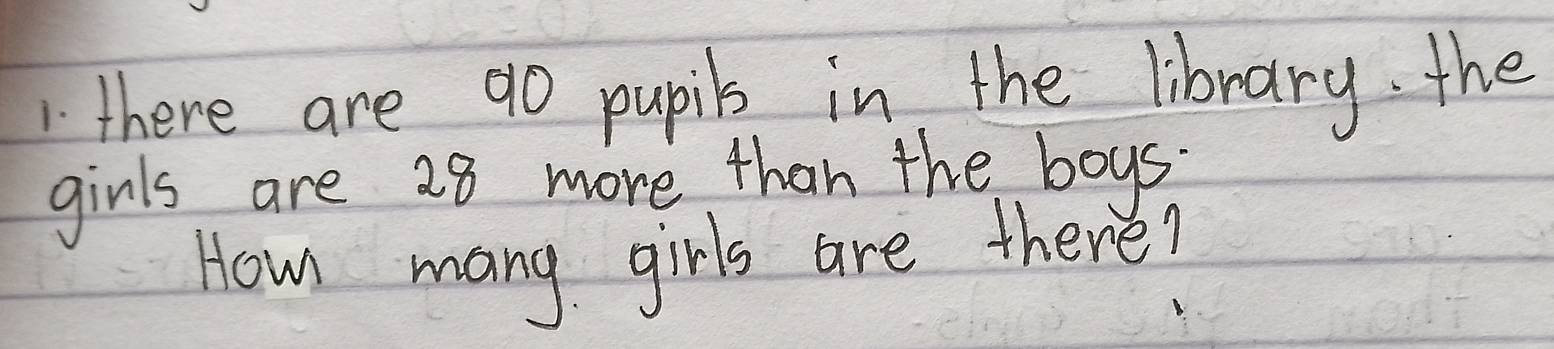 1. there are 90 pupils in the library. the
girls are 28 more than the boys.
How many girls are there?